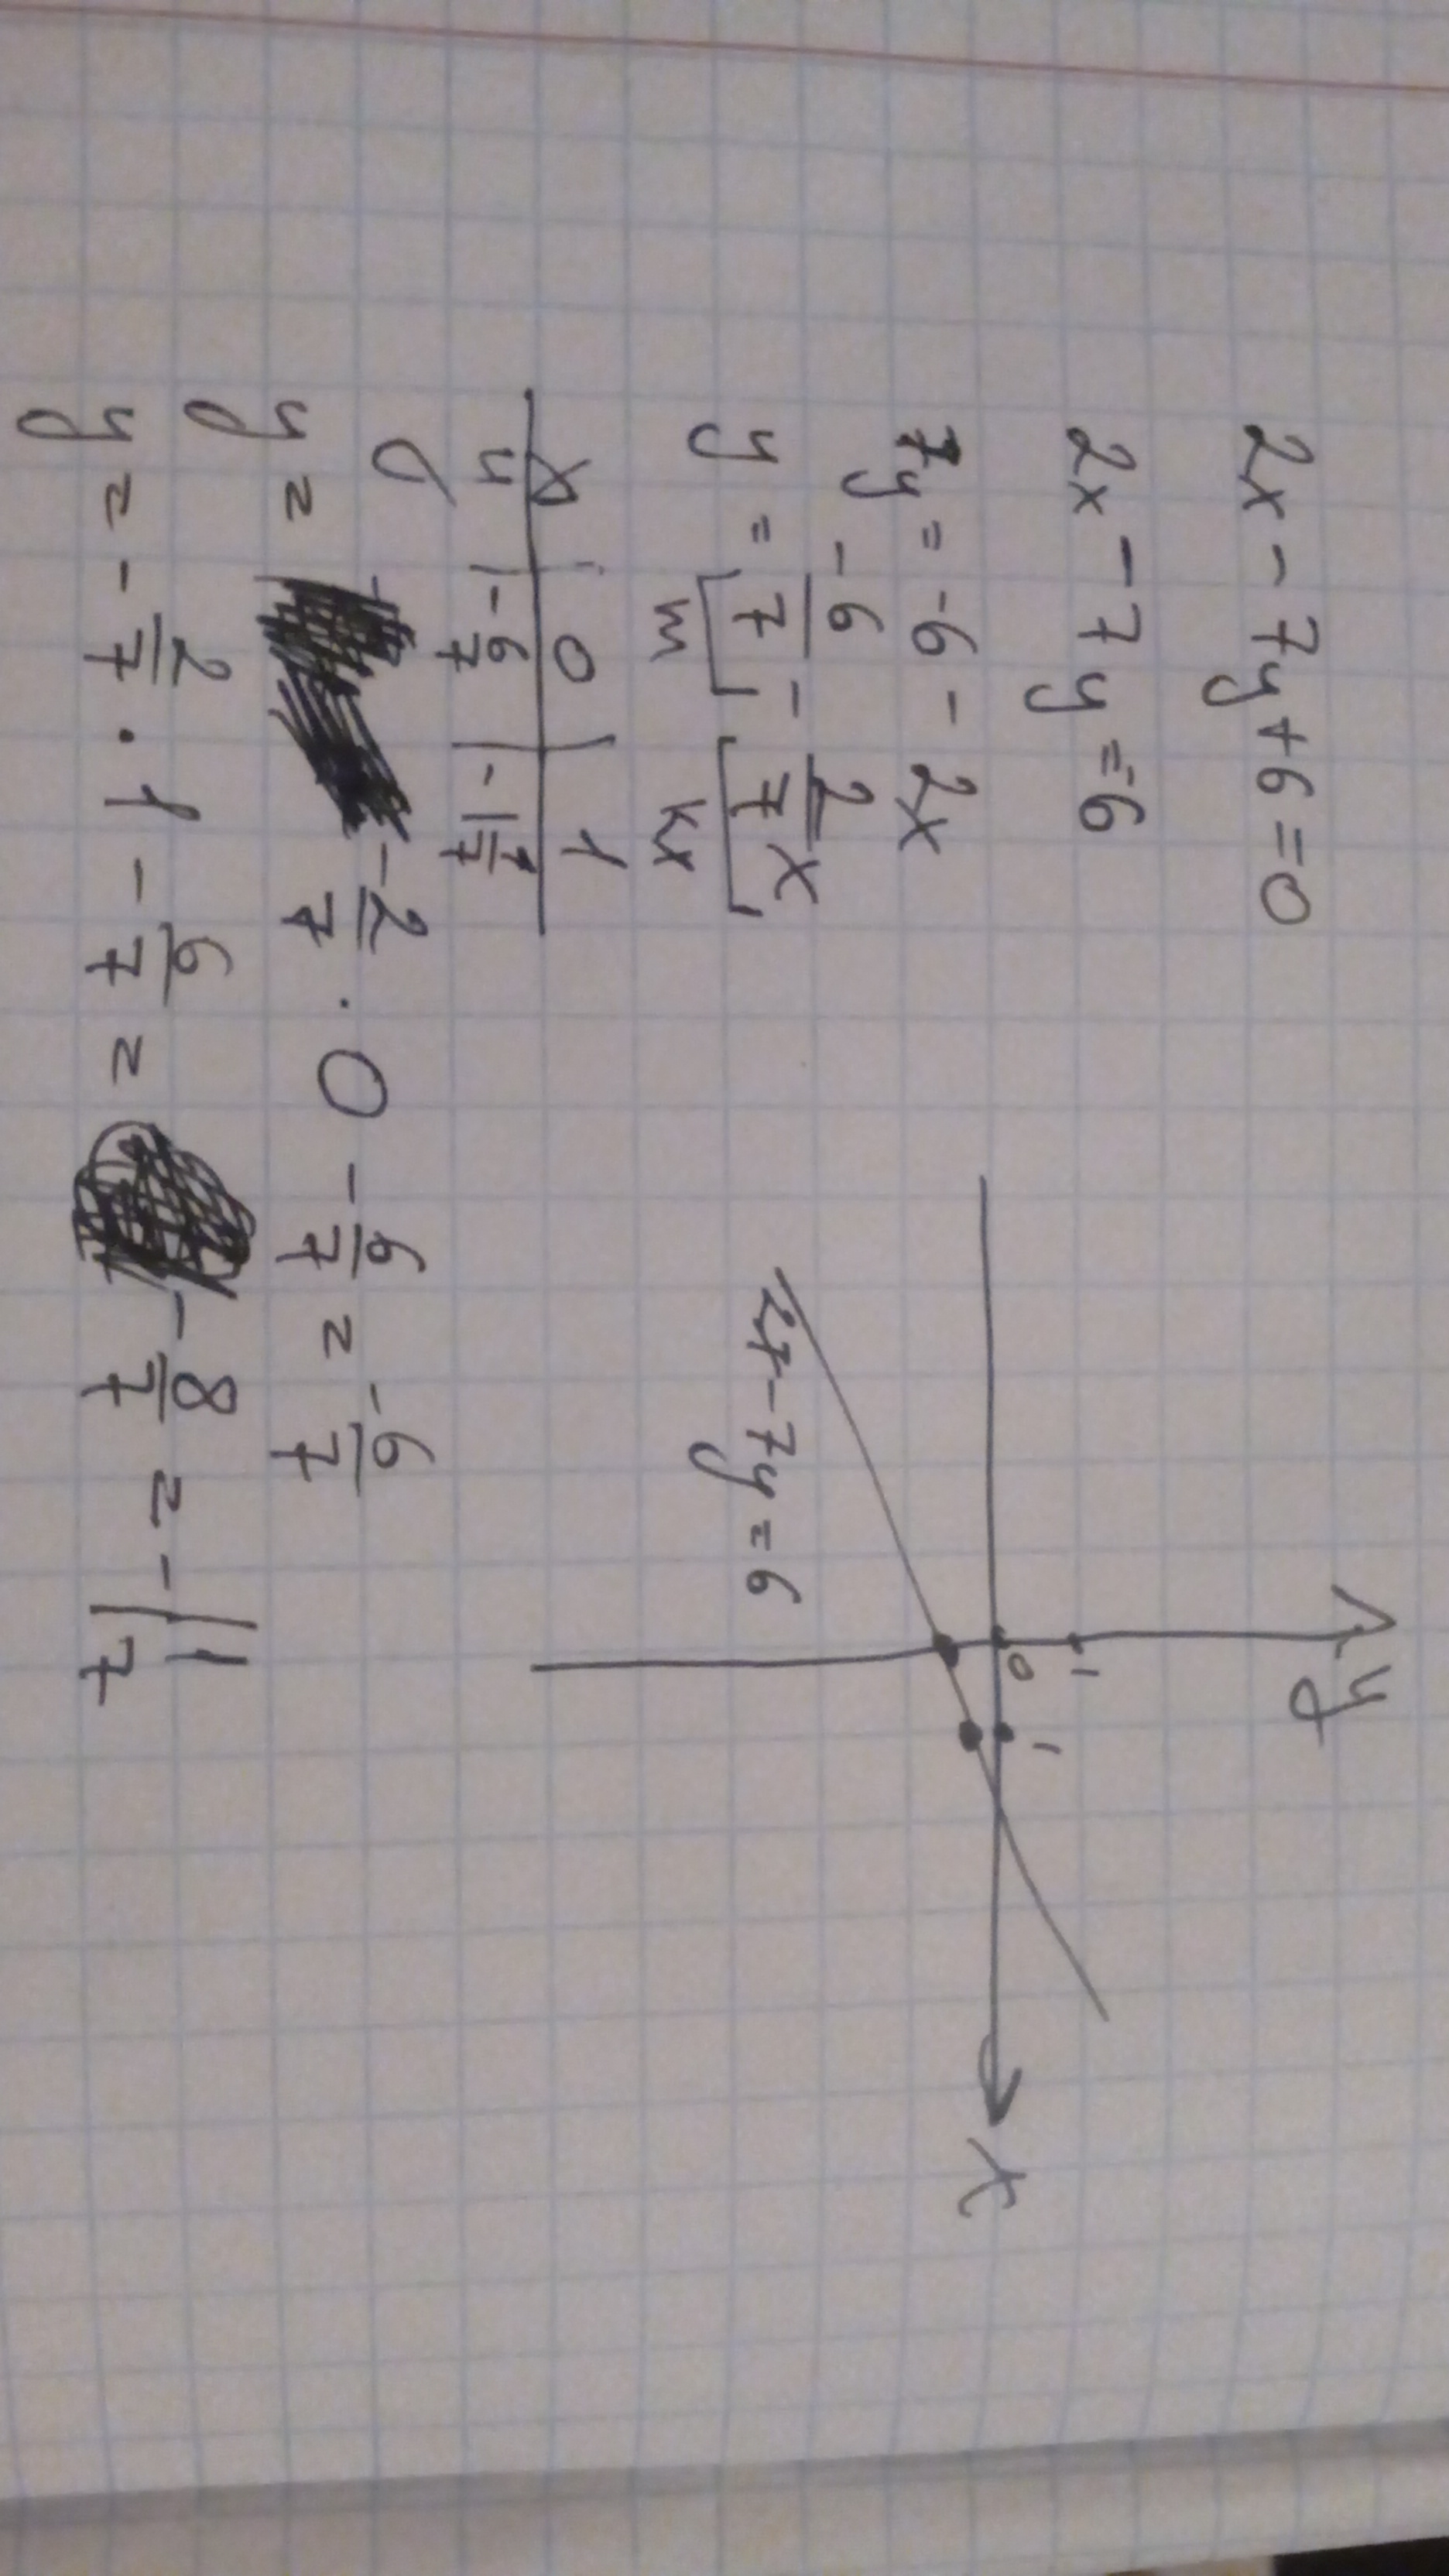 2x - 7y + 6 = 0
2x - 7y = -6
7y = -6 - 2x
y = -6/7 - 2/7 x
m kx
x | 0 | 1
y | -6/7 | -1 1/7
y = -2/7 · 0 - 6/7 = -6/7
y = -2/7 · 1 - 6/7 = -8/7 = -1 1/7
y
1
0
1
x
2x - 7y = 6